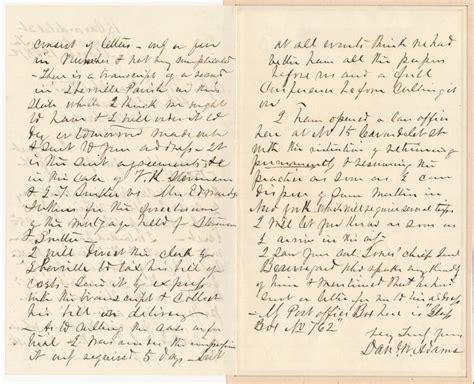 consist of letters - only a few
in number & not very complicated
- There is a transcript of a record
in Iberville Parish in this
State which I think we ought
to have & I will order it to
day or tomorrow made out
& sent to your address - It
is the suit agreements &c
in the case of V. K. Stevenson
& vs Mrs
for the foreclosure
of the mortgage held by Stevenson
&
I will direct the clerk of
Iberville to tax his bill of
costs - send it by express
with the transcript & collect
his bill on delivery
- As to calling the case up for
trial - I was under the impression
it only required 5 days - but
at all events think we had
better have all the papers
before us and a full
conference before calling it
on
I have opened a law office
here at No 15 Carondelet St
with the intention of returning
permanently & resuming the
practice as soon as I can
dispose of some matters in
New York which will require several days
I will let you know as soon as
I arrive in the city.
I saw your chief Genl
Beauregard who spoke very kindly
of you & mentioned that he had
sent a letter for you to his address
- My Post office Box here is "
Box No 762"
Very Truly yours
Dan. W. Adams